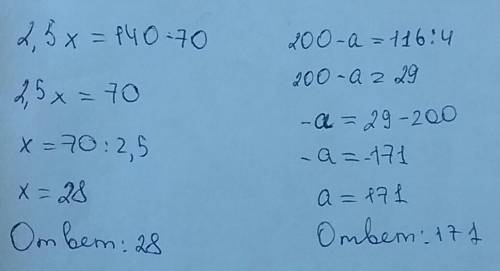 2,5x = 140-70
2,5x = 70
x = 70 : 2,5
x = 28
Ответ: 28
200-a = 116:4
200-a = 29
-a = 29-200
-a = -171
a = 171
Ответ: 171